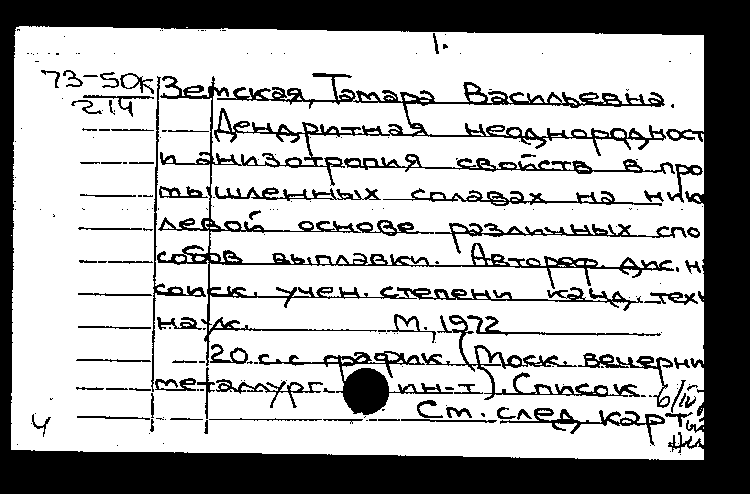 1.
73-50к Земская, Тамара Васильевна.
214
Дендритная неоднородност
и анизотропия свойств в про
мышленных сплавах на нике
левой основе различных спо
собов выплавки. Автореф. дис. н
соиск. учен. степени канд. техн
наук. М., 1972
20 с. с график. (Моск. вечерни
металлург. ин-т). Список
Ст. след. карт
4